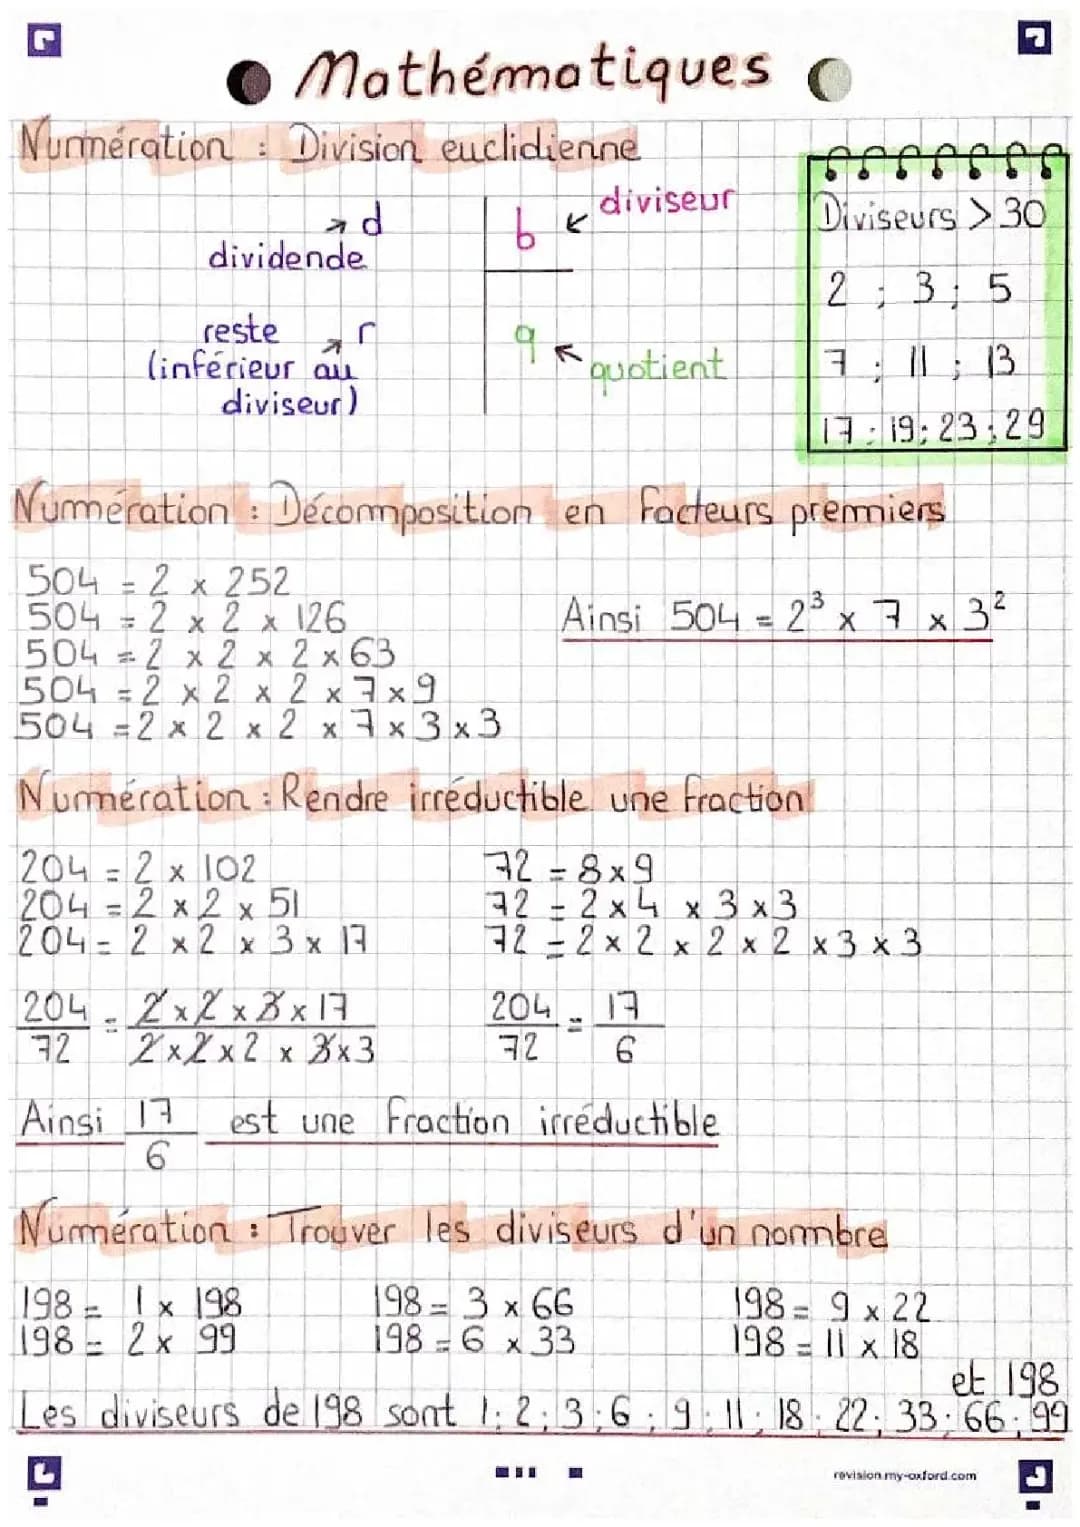 Mathématiques
Numération : Division euclidienne
d
dividende
b
diviseur
reste
(inférieur au
diviseur)
r
q
quotient
Diviseurs > 30
2 ; 3 ; 5
7 ; 11 ; 13
17 ; 19 ; 23 ; 29
Numération : Décomposition en facteurs premiers
504 = 2 x 252
504 = 2 x 2 x 126
504 = 2 x 2 x 2 x 63
504 = 2 x 2 x 2 x 7 x 9
504 = 2 x 2 x 2 x 7 x 3 x 3
Ainsi 504 = 2³ x 7 x 3²
Numération : Rendre irréductible une fraction
204 = 2 x 102
204 = 2 x 2 x 51
204 = 2 x 2 x 3 x 17
72 = 8 x 9
72 = 2 x 4 x 3 x 3
72 = 2 x 2 x 2 x 2 x 3 x 3
204 = 2 x 2 x 3 x 17
72 2 x 2 x 2 x 3 x 3
204 = 17
72 6
Ainsi 17 est une fraction irréductible
6
Numération : Trouver les diviseurs d'un nombre
198 = 1 x 198
198 = 2 x 99
198 = 3 x 66
198 = 6 x 33
198 = 9 x 22
198 = 11 x 18
et 198
Les diviseurs de 198 sont 1 ; 2 ; 3 ; 6 ; 9 ; 11 ; 18 ; 22 ; 33 ; 66 ; 99
revision.my-oxford.com